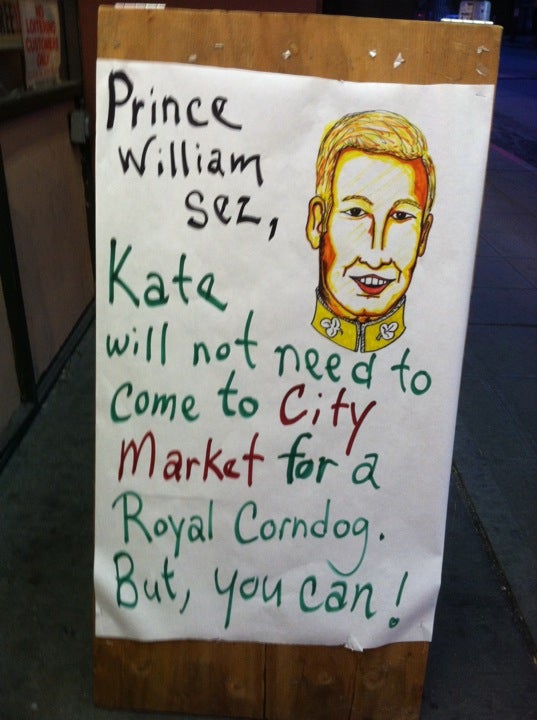 Prince
William
Sez,
Kate
will not need to
Come to City
Market for a
Royal Corndog.
But, you can!